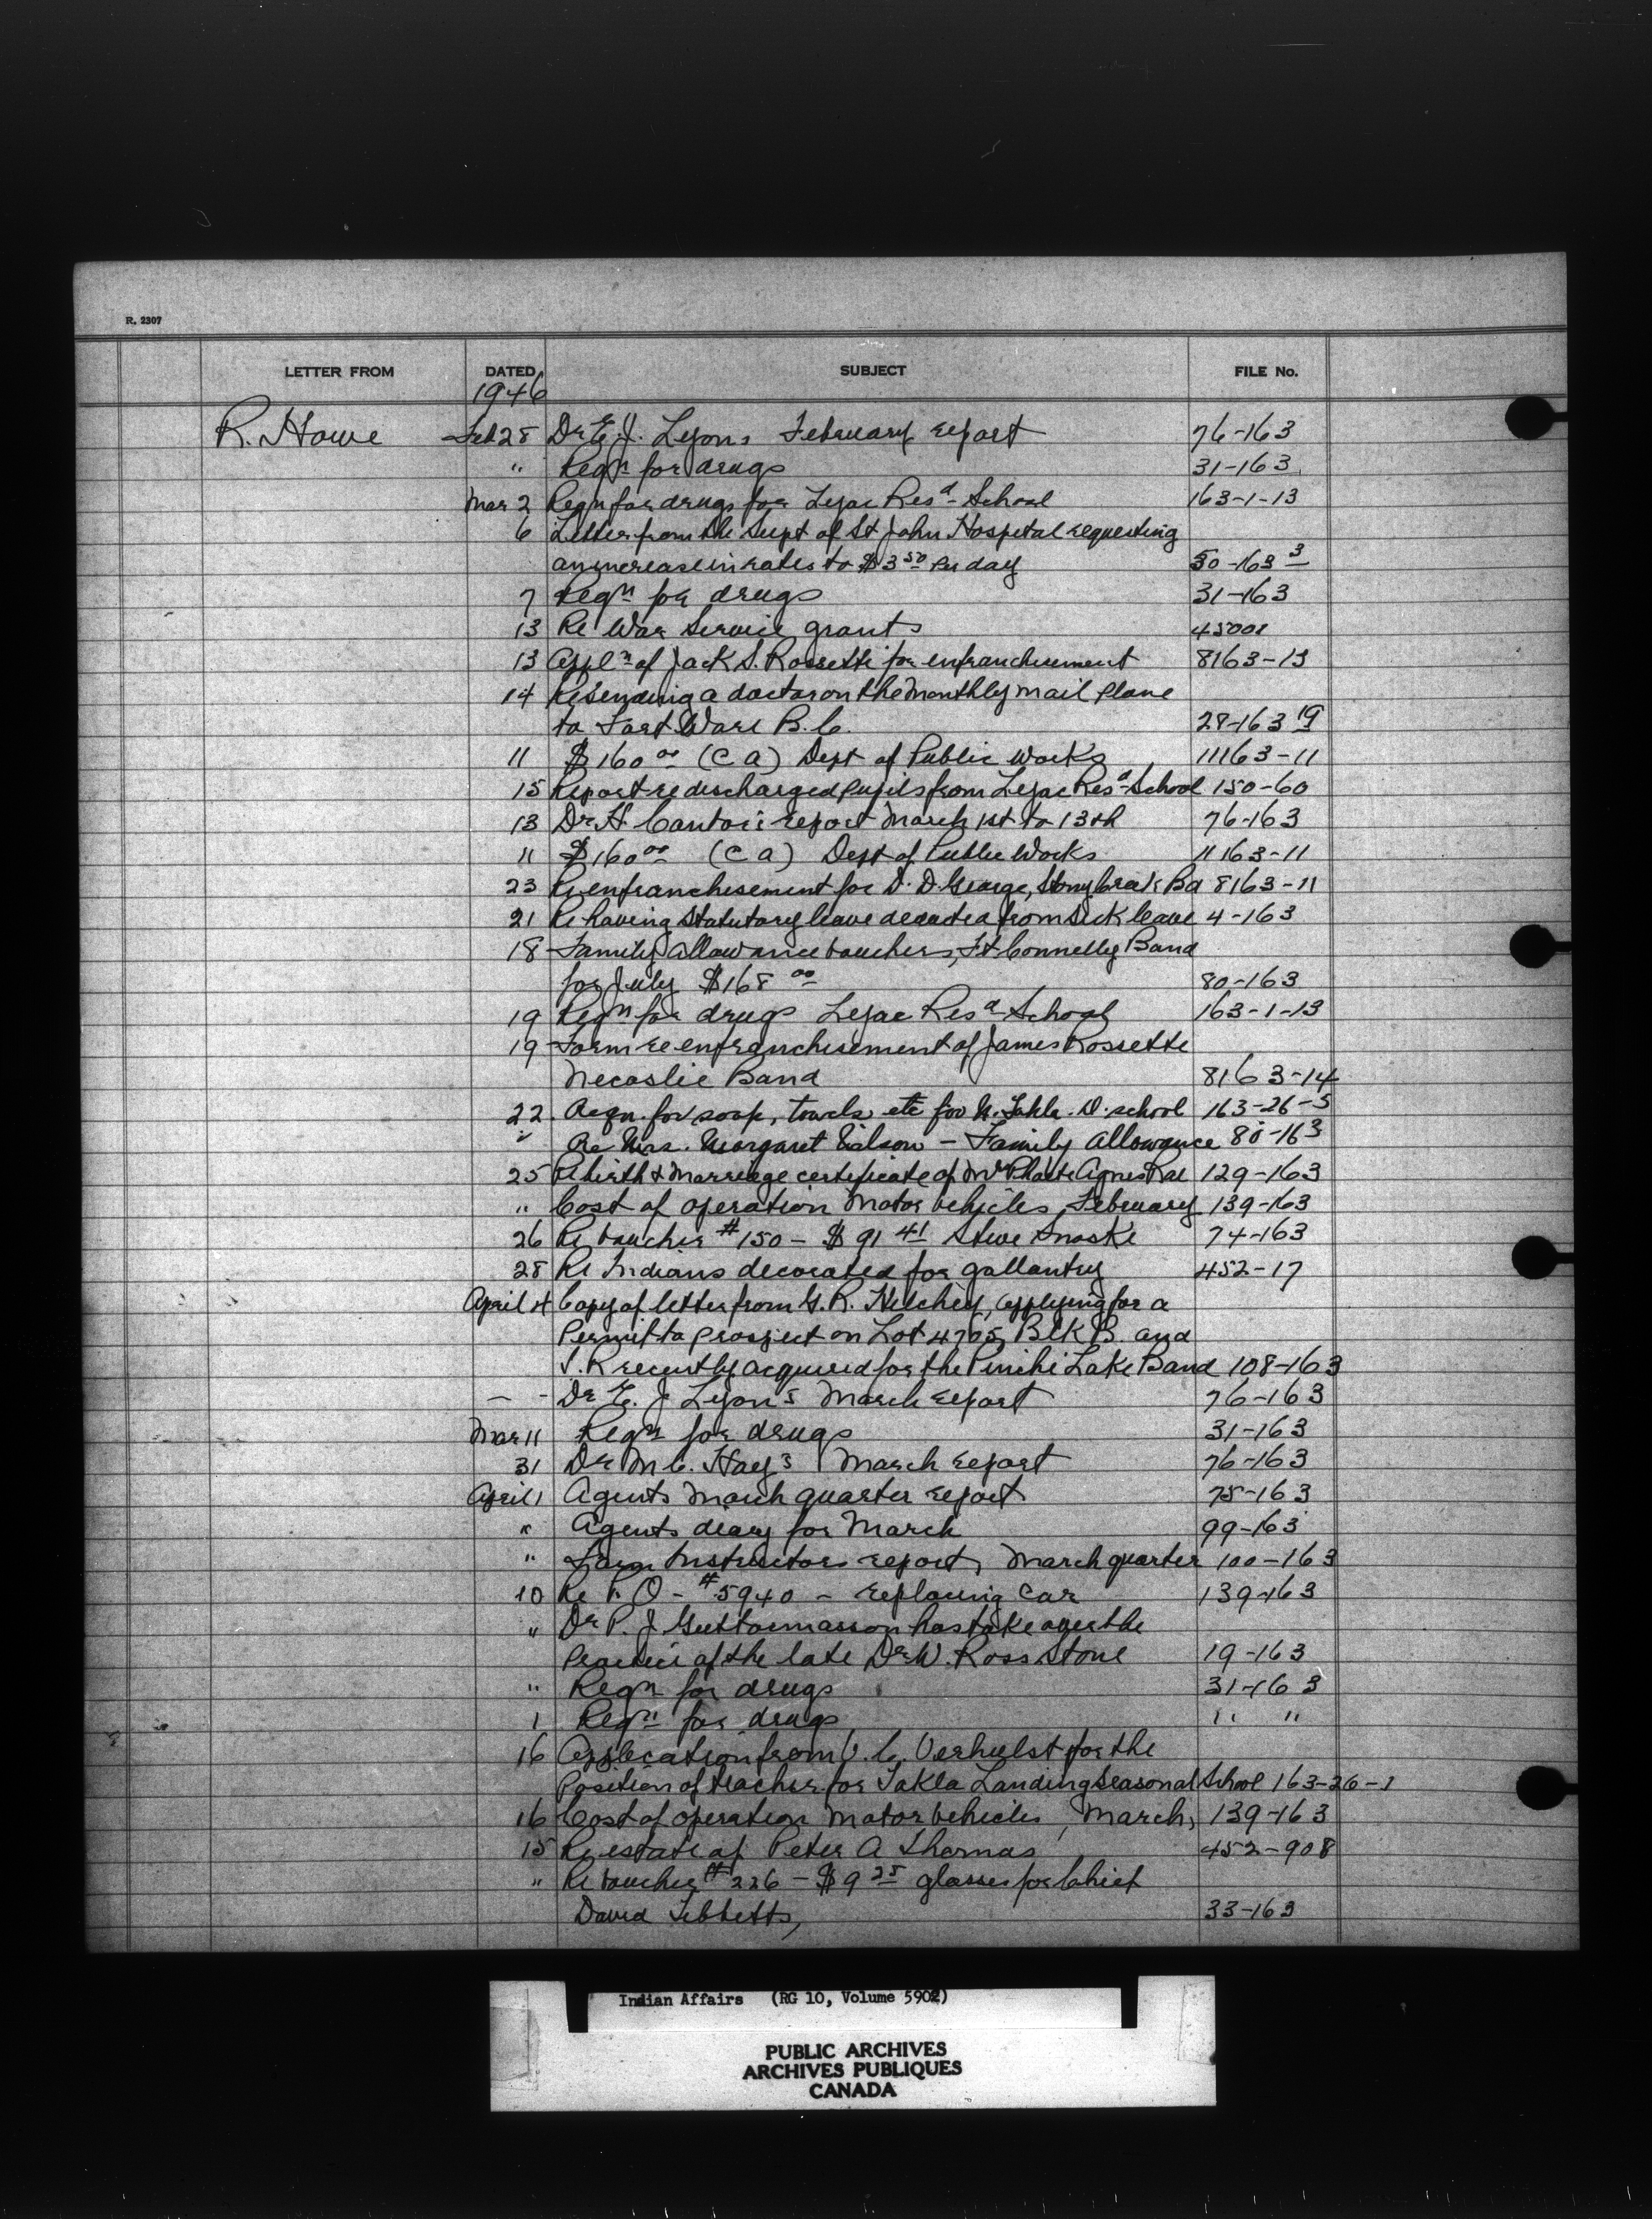 R. 2307
LETTER FROM DATED SUBJECT FILE No.
1946
R. Howe Feb 28 Dr E. J. Lyons February report 76-163
" Reqn for drugs 31-163
Mar 2 Reqn for drugs for Lejac Resd School 163-1-13
6 Letter from the Supt of St John Hospital requesting
an increase in rates to $3 50 per day 50-163 3
7 Reqn for drugs 31-163
13 Re War Service grants
13 Appln of Jack S. Rossette for enfranchisement 8163-13
14 Re sending a doctor on the monthly mail plane
to Fort Ware B.C. 28-163 19
11 $160 00 (C A) Dept of Public Works 11163-11
15 Report re discharged pupils from Lejac Resd School 150-60
13 Dr H. Cantor's report March 1st to 13th 76-163
11 $160 00 (C A) Dept of Public Works 11163-11
23 Re enfranchisement for D. D. George, Stony Creek Bd 8163-11
21 Re having Statutory leave deducted from Sick leave 4-163
18 Family Allowance vouchers, Ft Connelly Band
for July $168 00 80-163
19 Reqn for drugs Lejac Resd School 163-1-13
19 Form re enfranchisement of James Rossette
Necoslie Band 8163-14
22. Reqn. for soap, towels etc for N. Takla. D. school 163-26-5
" Re Mrs. Margaret - Family Allowance 80-163
25 Re birth & Marriage certificate of Agnes 129-163
" Cost of operation motor vehicles, February 139-163
26 Re voucher #150 - $91 41 Steve 74-163
28 Re Indians decorated for gallantry 452-17
April 4 Copy of letter from G. R. applying for a
Permit to prospect on Lot 4705, Blk B. and
recently acquired for the Pinchi Lake Band 108-163
- - Dr E. J. Lyon's March report 76-163
Mar 11 Reqn for drugs 31-163
31 Dr M C. Hay's March report 76-163
April 1 Agents March quarter report 75-163
" Agents diary for March 99-163
" Farm Instructors report, March quarter 100-163
10 Re P. O - #5940 - replacing car 139-163
" Dr P. J. Guttormasson has take over the
Practice of the late Dr W. Ross Stone 19-163
" Reqn for drugs 31-163
1 Reqn for drugs " "
16 Application from V. C. Verhulst for the
Position of teacher for Takla Landing Seasonal School 163-26-1
16 Cost of operation Motor Vehicles, March, 139-163
15 Re estate of Peter A Thomas 452-908
" Re voucher #226 - $9 25 glasses for Chief
David Tibbetts, 33-163
Indian Affairs (RG 10, Volume 5902)
PUBLIC ARCHIVES
ARCHIVES PUBLIQUES
CANADA